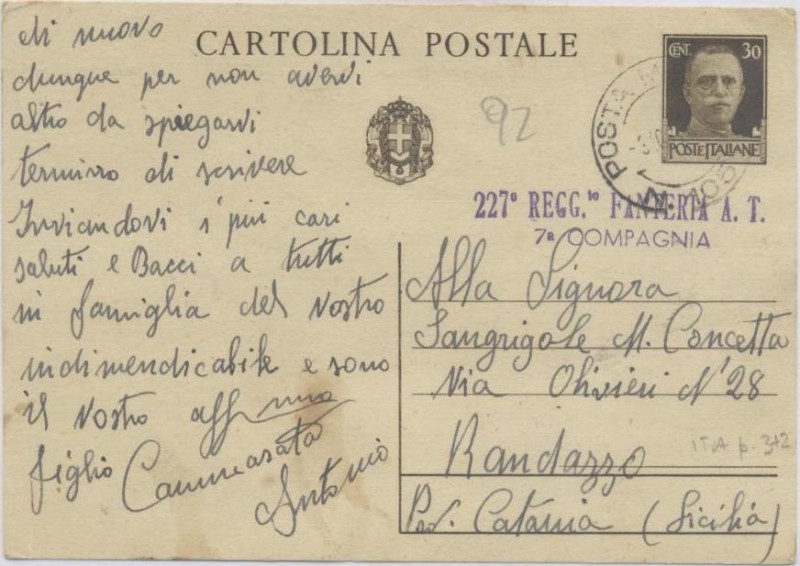 CARTOLINA POSTALE
di nuovo
dunque per non avervi
altro da spiegarvi
termino di scrivere
Inviandovi i più cari
saluti e Bacci a tutti
in famiglia del Vostro
indimendicabile e sono
il vostro aff/mo
figlio Cammarata
Antonio
92
CENT. 30
POSTE ITALIANE
POSTA M
N. 105
227° REGG.to FANTERIA A. T.
7a COMPAGNIA
Alla Signora
Sangrigole M. Concetta
Via Olivieri N° 28
Randazzo
ITA p. 342
Prov. Catania (Sicilia)